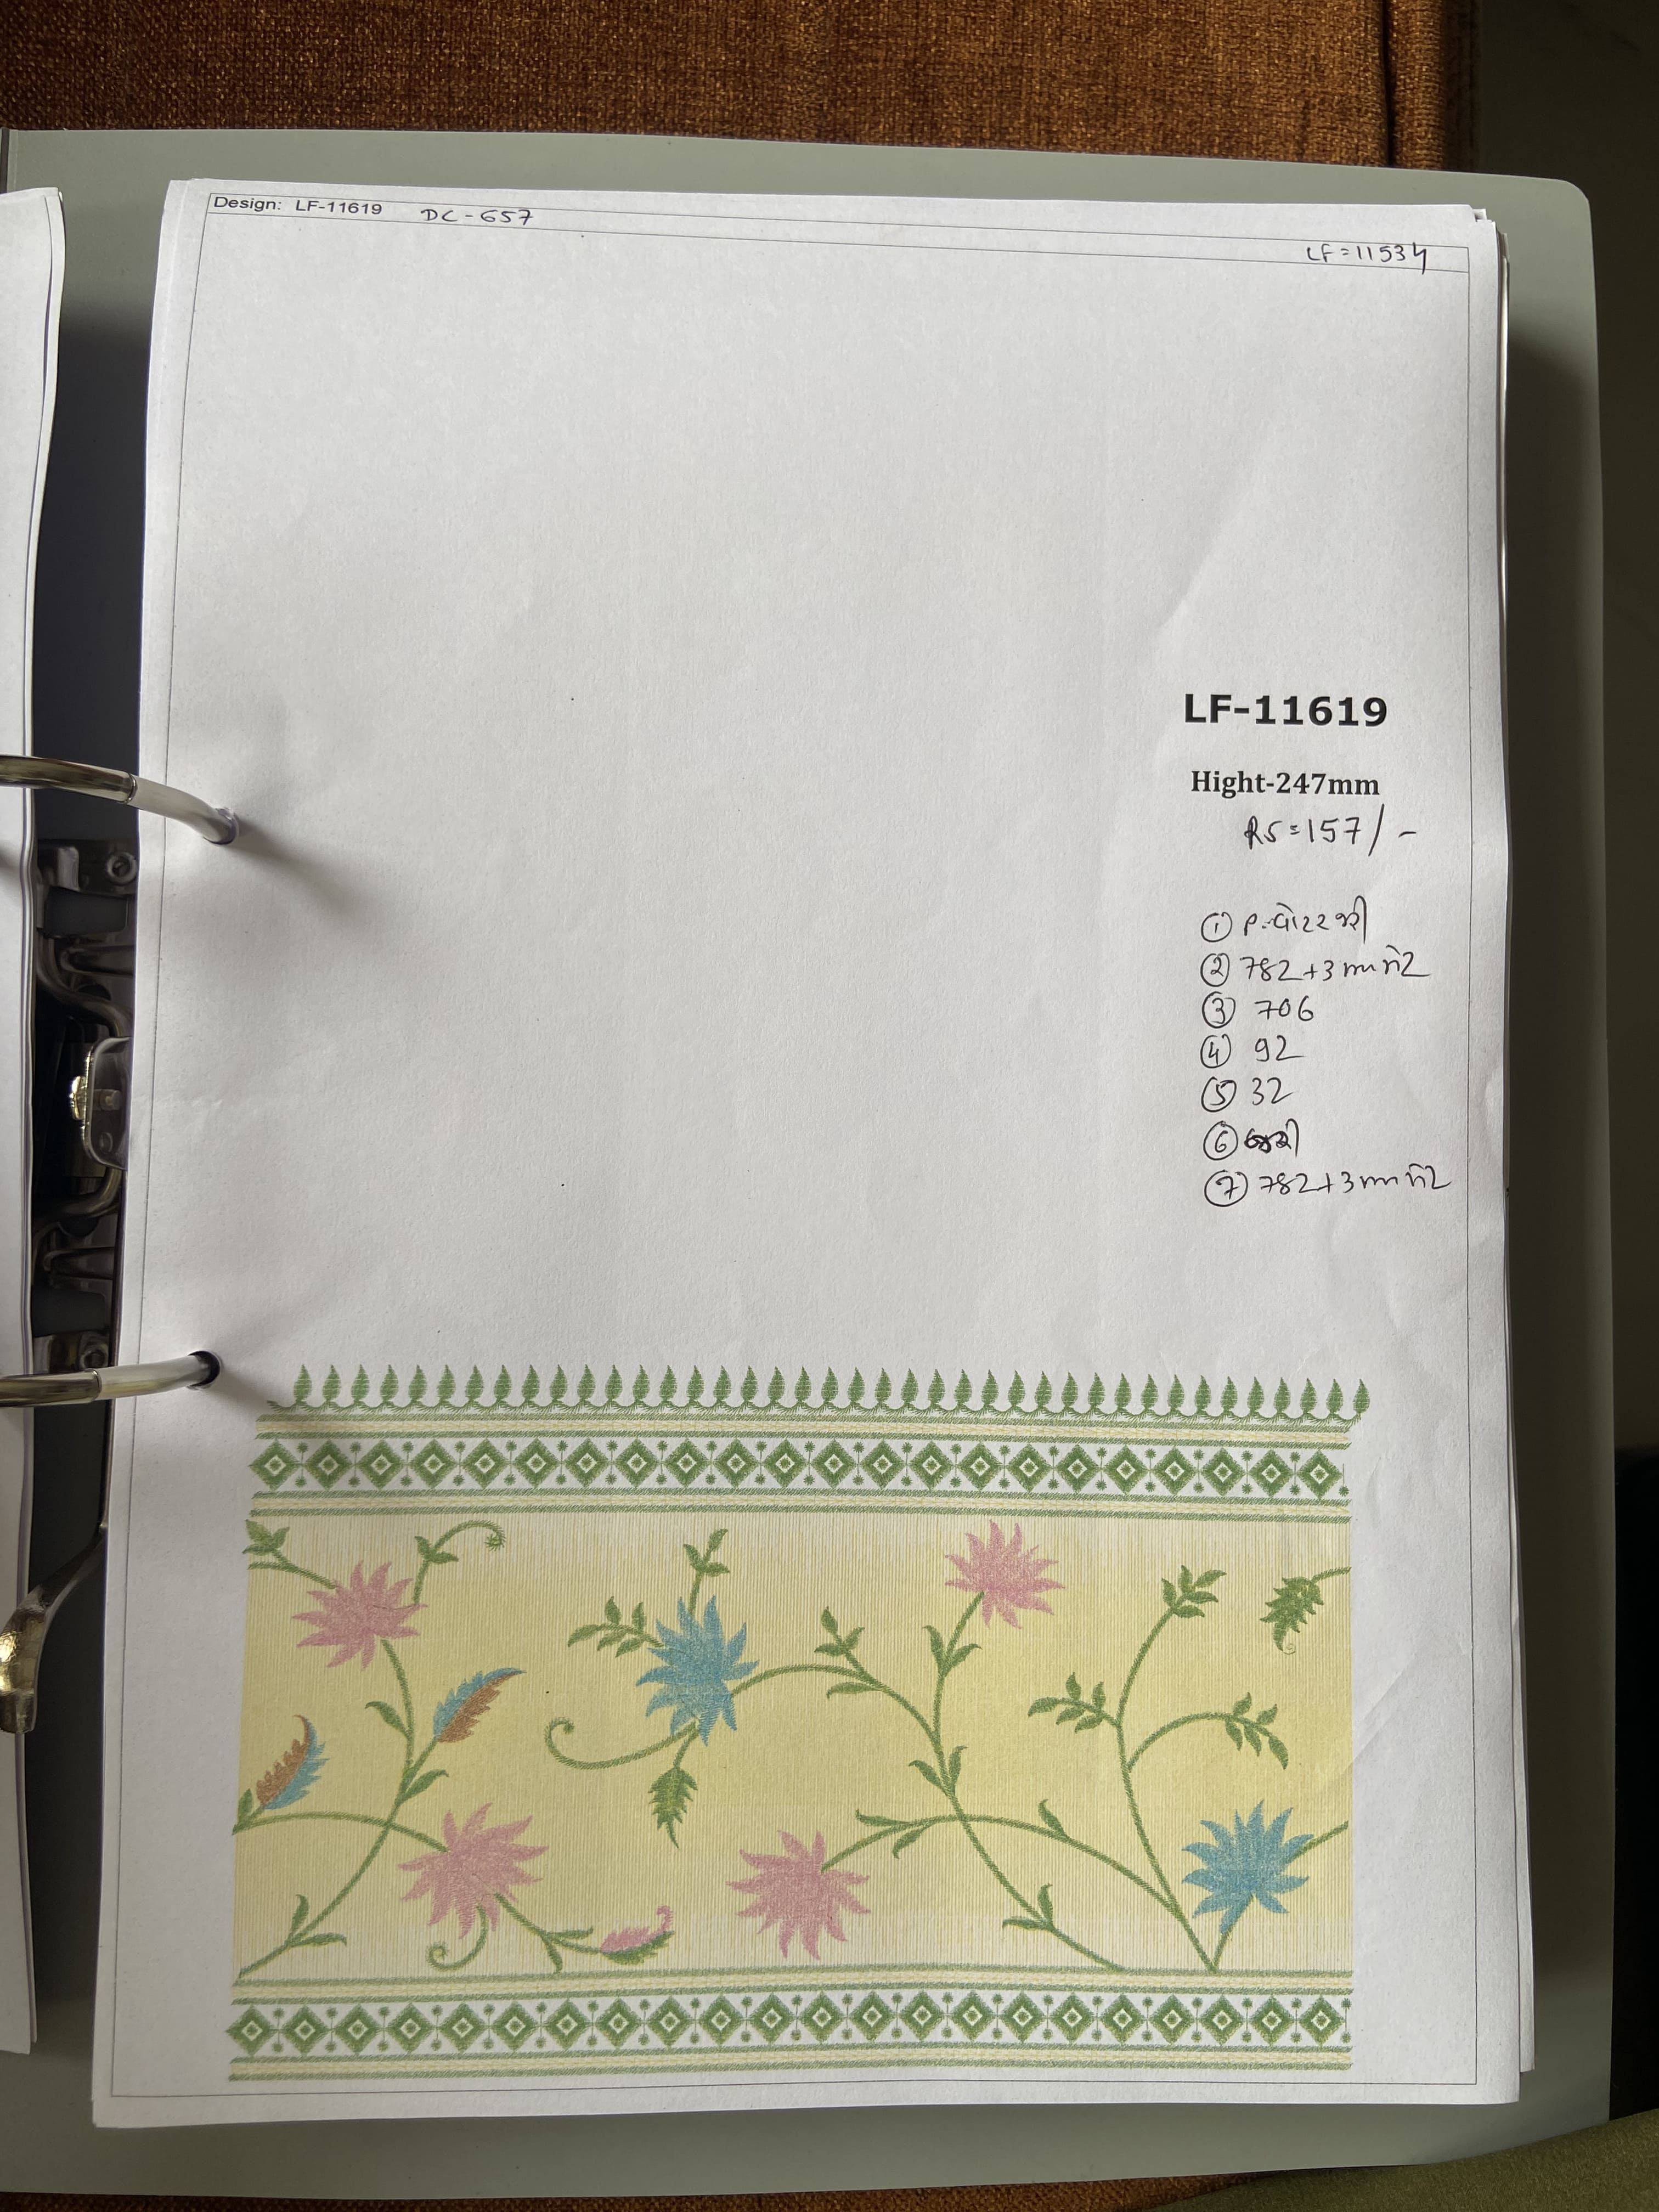 Design: LF-11619 DC-657
LF=11534
LF-11619
Hight-247mm
RS=157/-
① P.વોટર જરી
② 782+3mm સે2
③ 706
④ 92
⑤ 32
⑥ જરી
⑦ 782+3mm